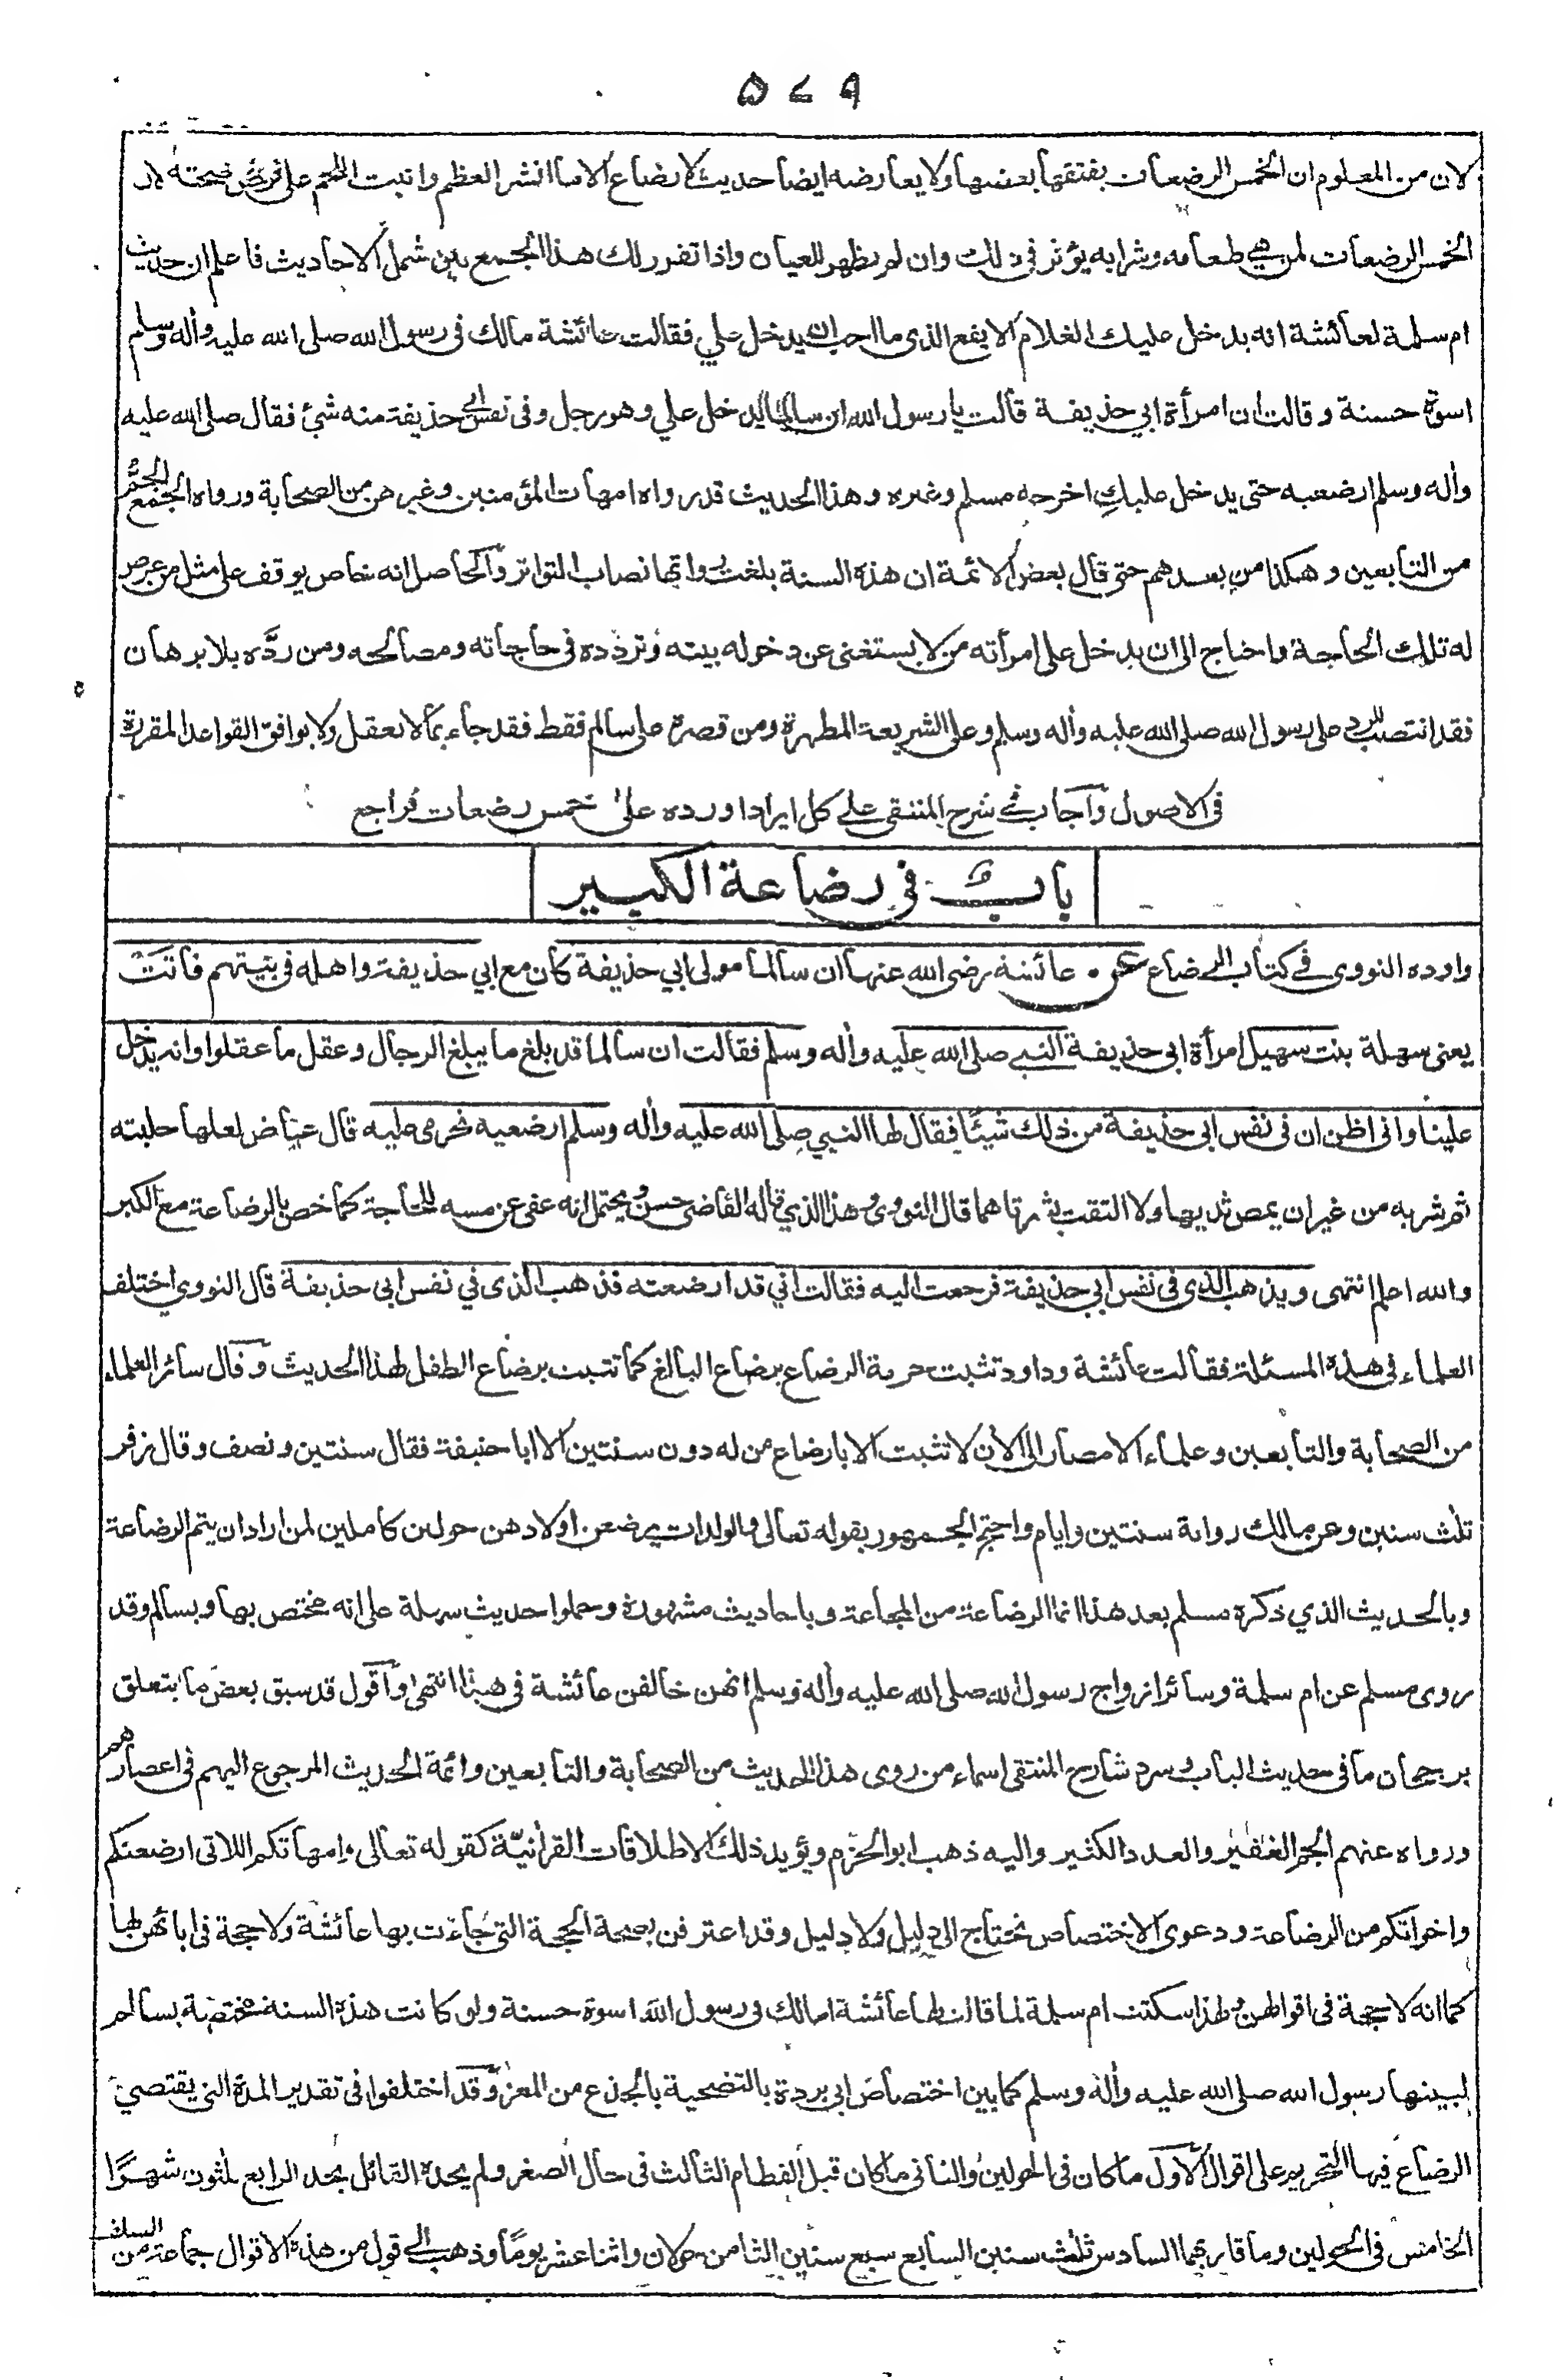 ٥٧٩
لان من المعلوم ان الخمس الرضعات يفتقها بعضها ولا يعارضه ايضا حديث لا رضاع الا ما انشر العظم وانبت اللحم على فرض صحته لان
الخمس الرضعات لمن هي طعامه وشرابه يؤثر في ذلك وان لم يظهر للعيان واذا تقرر لك هذا الجمع بين شمل الاحاديث فاعلم ان حديث
ام سلمة لعائشة انه يدخل عليك الغلام الايفع الذى ما احب ان يدخل علي فقالت عائشة مالك فى رسول الله صلى الله عليه وأله وسلم
اسوة حسنة وقالت ان امرأة ابي حذيفة قالت يا رسول الله ان سالما يدخل علي وهو رجل وفى نفس ابي حذيفة منه شئ فقال صلى الله عليه
وأله وسلم ارضعيه حتى يدخل عليكِ اخرجه مسلم وغيره وهذا الحديث قد رواه امهات المؤمنين وغيرهن من الصحابة ورواه الجمع الجم
من التابعين وهكذا من بعدهم حتى قال بعض الائمة ان هذه السنة بلغت رواتها نصاب التواتر والحاصل انه خاص يوقف على مثل من عرض
له تلك الحاجة واحتاج الى ان يدخل على امرأته من لا يستغنى عن دخوله بيته وتردده فى حاجاته ومصالحه ومن ردَّه بلا برهان
فقد انتصب للرد على رسول الله صلى الله عليه وأله وسلم وعلى الشريعة المطهرة ومن قصره على سالم فقط فقد جاء بما لا يعقل ولا يوافق القواعد المقررة
فى الاصول وأجاب في شرح المنتقى على كل ايراد اورده على خمس رضعات فراجع
باب في رضاعة الكبير
واورده النووى في كتاب الرضاع عن عائشة رضى الله عنها ان سالما مولى ابي حذيفة كان مع ابي حذيفة واهله فى بيتهم فأتت
يعنى سهلة بنت سهيل امرأة ابى حذيفة النبي صلى الله عليه وأله وسلم فقالت ان سالما قد بلغ ما يبلغ الرجال وعقل ما عقلوا وانه يدخل
علينا وانى اظن ان فى نفس ابى حذيفة من ذلك شيئًا فقال لها النبي صلى الله عليه وأله وسلم ارضعيه تحرمى عليه قال عياض لعلها حلبته
ثم شربه من غير ان يمص ثديها ولا التقت بشرتاهما قال النووى وهذا الذي قاله القاضى حسن ويحتمل انه عفى عن مسه للحاجة كما خص بالرضاعة مع الكبر
والله اعلم انتهى ويذهب الذى فى نفس ابي حذيفة فرجعت اليه فقالت اني قد ارضعته فذهب الذى في نفس ابى حذيفة قال النووي اختلف
العلماء فى هذه المسئلة فقالت عائشة وداود تثبت حرمة الرضاع برضاع البالغ كما تثبت برضاع الطفل لهذا الحديث وقال سائر العلماء
من الصحابة والتابعين وعلماء الامصار الى الأن لا تثبت الا بارضاع من له دون سنتين الا ابا حنيفة فقال سنتين ونصف وقال زفر
ثلث سنين وعن مالك رواية سنتين وايام واحتج الجمهور بقوله تعالى والوالدات يرضعن اولادهن حولين كاملين لمن اراد ان يتم الرضاعة
وبالحديث الذي ذكره مسلم بعد هذا انما الرضاعة من المجاعة وباحاديث مشهورة وحملوا حديث سهلة على انه مختص بها وبسالم وقد
روى مسلم عن ام سلمة وسائر ازواج رسول الله صلى الله عليه وأله وسلم انهن خالفن عائشة فى هذا انتهى وأقول قد سبق بعض ما يتعلق
برجحان ما فى حديث الباب وسرد شارح المنتقى اسماء من روى هذا الحديث من الصحابة والتابعين وائمة الحديث المرجوع اليهم فى اعصارهم
ورواه عنهم الجم الغفير والعدد الكثير واليه ذهب ابو الحزم ويؤيد ذلك الاطلاقات القرأنيّة كقوله تعالى وامهاتكم اللاتى ارضعنكم
واخواتكم من الرضاعة ودعوى الاختصاص تحتاج الى دليل ولا دليل وقد اعترفن بصحة الحجة التى جاءت بها عائشة ولا حجة فى ابائهن لها
كما انه لا حجة فى اقوالهن ولهذا سكتت ام سلمة لما قالت لها عائشة امالك فى رسول الله اسوة حسنة ولو كانت هذه السنة مختصة بسالم
لبينها رسول الله صلى الله عليه وأله وسلم كما بين اختصاص ابى بردة بالتضحية بالجذع من المعز وقد اختلفوا فى تقدير المدة التى يقتضي
الرضاع فيها التحريم على اقوال الأول ما كان فى الحولين والثانى ما كان قبل الفطام الثالث فى حال الصغر ولم يحده القائل بحد الرابع ثلثون شهرًا
الخامس فى الحولين وما قاربهما السادس ثلث سنين السابع سبع سنين الثامن حولان واثنا عشر يومًا وذهب الى قول من هذه الاقوال جماعة من السلف